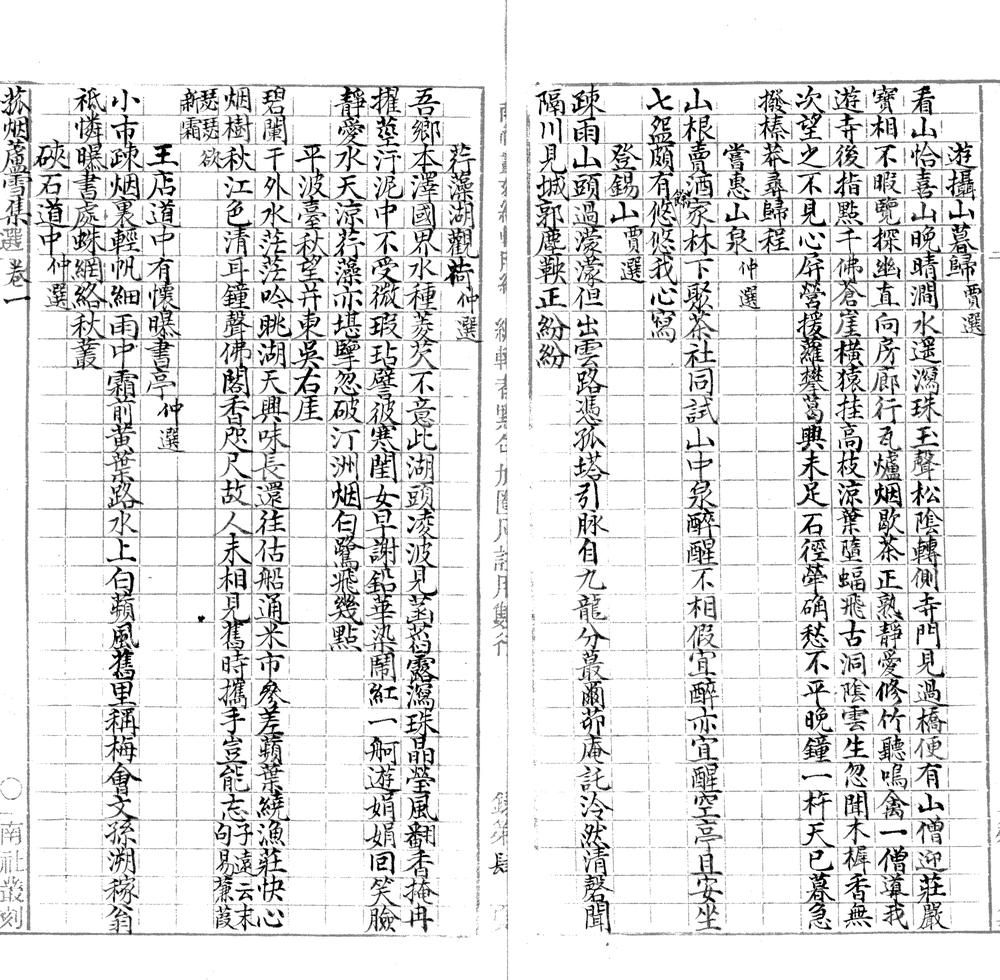 遊攝山暮歸賈選
看山恰喜山晚晴澗水遥瀉珠玉聲松陰轉側寺門見過橋便有山僧迎莊嚴
寶相不暇覽探幽直向房廊行瓦爐烟歇茶正熟靜愛修竹聽鳴禽一僧導我
遊寺後指點千佛蒼崖橫猿挂高枝涼葉墮蝠飛古洞陰雲生忽聞木樨香無
次望之不見心屏營援蘿攀葛興未足石徑犖确愁不平晚鐘一杵天已暮急
撥榛莽尋歸程
嘗惠山泉仲選
山根賣酒家林下聚茶社同試山中泉醉醒不相假宜醉亦宜醒空亭且安坐
七盌頗有餘悠悠我心寫
登錫山賈選
疎雨山頭過濛濛但出雲路憑孤塔引脉自九龍分蕞爾茆庵託泠然清磬聞
隔川見城郭塵鞅正紛紛
荇藻湖觀荷仲選
吾鄉本澤國界水種菱芡不意此湖頭凌波見菡萏露瀉珠晶瑩風翻香掩冉
擢莖汙泥中不受微瑕玷譬彼寒閨女早謝鉛華染鬧紅一舸遊娟娟回笑臉
靜愛水天涼荇藻亦堪擥忽破汀洲烟白鷺飛幾點
平波臺秋望弁東吳右厓
碧闌干外水茫茫吟眺湖天興味長還往估船通米市參差蘋葉繞漁莊快心
烟樹秋江色清耳鐘聲佛閣香咫尺故人未相見舊時攜手豈能忘子遠云末句易蒹葭
瑟瑟欲新霜
王店道中有懷曝書亭仲選
小市疎烟裏輕帆細雨中霜前黃葉路水上白蘋風舊里稱梅會文孫溯稼翁
祇憐曝書處蛛網絡秋叢
硤石道中仲選
菰烟蘆雪集選 卷一
〇南社叢刻